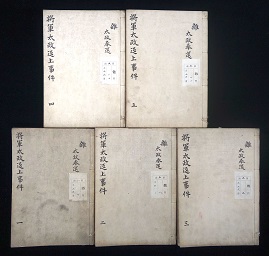 難
太政奉還
将軍太政返上事件
四
難
太政奉還
将軍太政返上事件
五
難
太政奉還
将軍太政返上事件
一
難
太政奉還
将軍太政返上事件
二
難
太政奉還
将軍太政返上事件
三